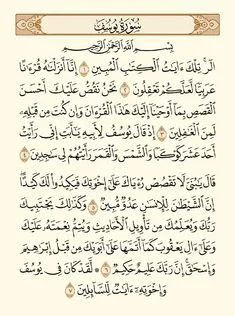 سُورَةُ يُوسُفَ
بِسْمِ ٱللَّهِ ٱلرَّحْمَٰنِ ٱلرَّحِيمِ
الٓر تِلْكَ ءَايَٰتُ ٱلْكِتَٰبِ ٱلْمُبِينِ ١ إِنَّآ أَنزَلْنَٰهُ قُرْءَٰنًا
عَرَبِيًّا لَّعَلَّكُمْ تَعْقِلُونَ ٢ نَحْنُ نَقُصُّ عَلَيْكَ أَحْسَنَ
ٱلْقَصَصِ بِمَآ أَوْحَيْنَآ إِلَيْكَ هَٰذَا ٱلْقُرْءَانَ وَإِن كُنتَ مِن قَبْلِهِۦ
لَمِنَ ٱلْغَٰفِلِينَ ٣ إِذْ قَالَ يُوسُفُ لِأَبِيهِ يَٰٓأَبَتِ إِنِّي رَأَيْتُ
أَحَدَ عَشَرَ كَوْكَبًا وَٱلشَّمْسَ وَٱلْقَمَرَ رَأَيْتُهُمْ لِي سَٰجِدِينَ ٤
قَالَ يَٰبُنَيَّ لَا تَقْصُصْ رُءْيَاكَ عَلَىٰٓ إِخْوَتِكَ فَيَكِيدُوا۟ لَكَ كَيْدًا
إِنَّ ٱلشَّيْطَٰنَ لِلْإِنسَٰنِ عَدُوٌّ مُّبِينٌ ٥ وَكَذَٰلِكَ يَجْتَبِيكَ
رَبُّكَ وَيُعَلِّمُكَ مِن تَأْوِيلِ ٱلْأَحَادِيثِ وَيُتِمُّ نِعْمَتَهُۥ عَلَيْكَ
وَعَلَىٰٓ ءَالِ يَعْقُوبَ كَمَآ أَتَمَّهَا عَلَىٰٓ أَبَوَيْكَ مِن قَبْلُ إِبْرَٰهِيمَ
وَإِسْحَٰقَ إِنَّ رَبَّكَ عَلِيمٌ حَكِيمٌ ٦ لَّقَدْ كَانَ فِي يُوسُفَ
وَإِخْوَتِهِۦٓ ءَايَٰتٌ لِّلسَّآئِلِينَ ٧